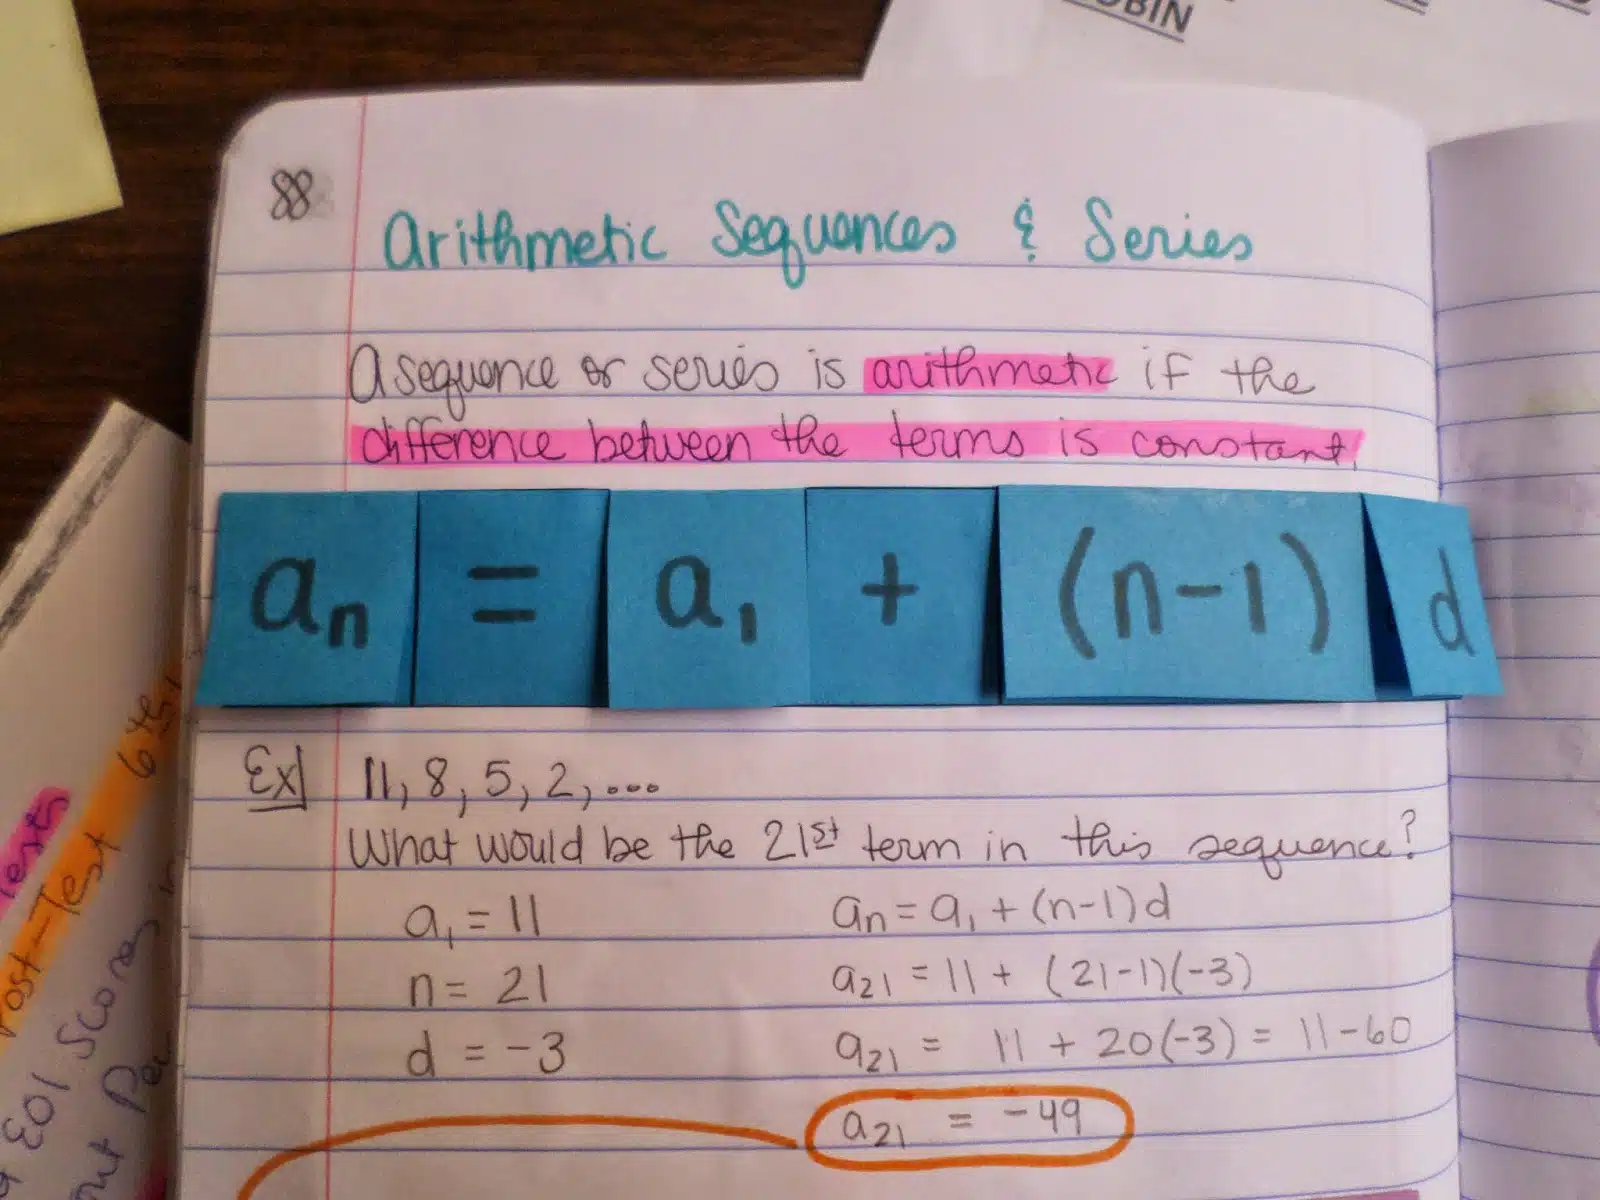 88
Arithmetic Sequences & Series
A sequence or series is arithmetic if the
difference between the terms is constant.
aₙ = a₁ + (n-1) d
Ex 11, 8, 5, 2, ...
What would be the 21st term in this sequence?
a₁ = 11
n = 21
d = -3
aₙ = a₁ + (n-1)d
a₂₁ = 11 + (21-1)(-3)
a₂₁ = 11 + 20(-3) = 11-60
a₂₁ = -49
6th
Post-Test
EOI Scores